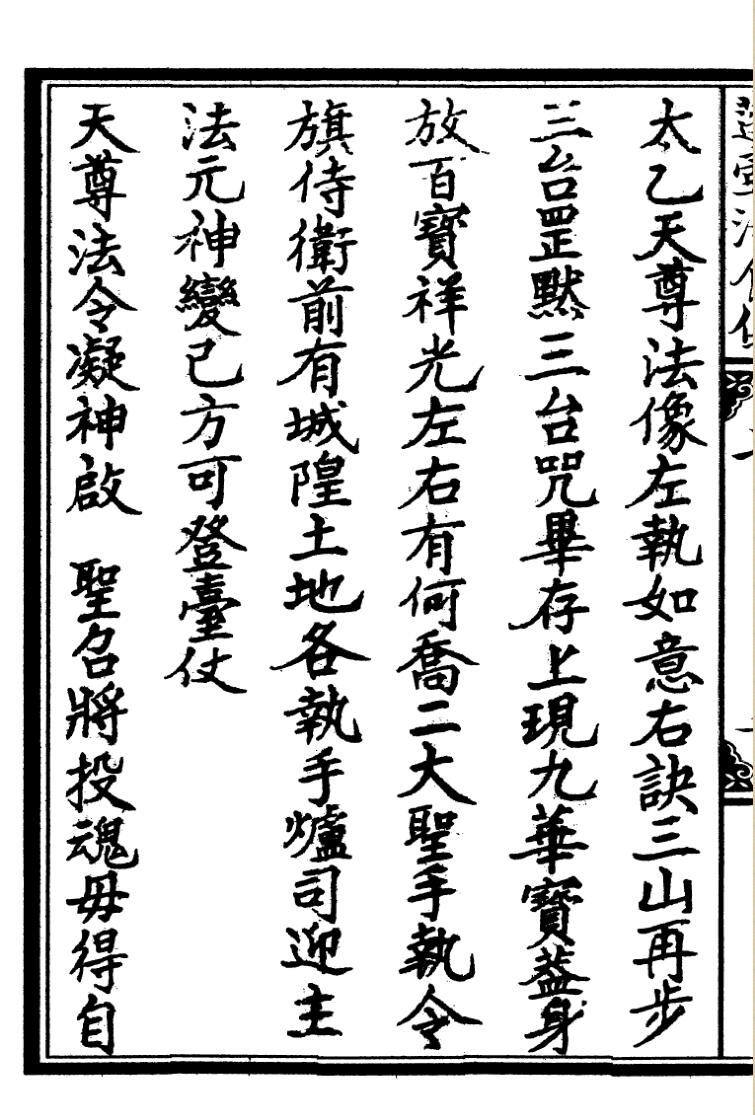 太乙天尊法像左執如意右訣三山再步
三台罡默三台咒畢存上現九華寶蓋身
放百寶祥光左右有何喬二大聖手執令
旗侍衛前有城隍土地各執手爐司迎主
法元神變已方可登臺仗
天尊法令凝神啟　聖召將投魂毋得自